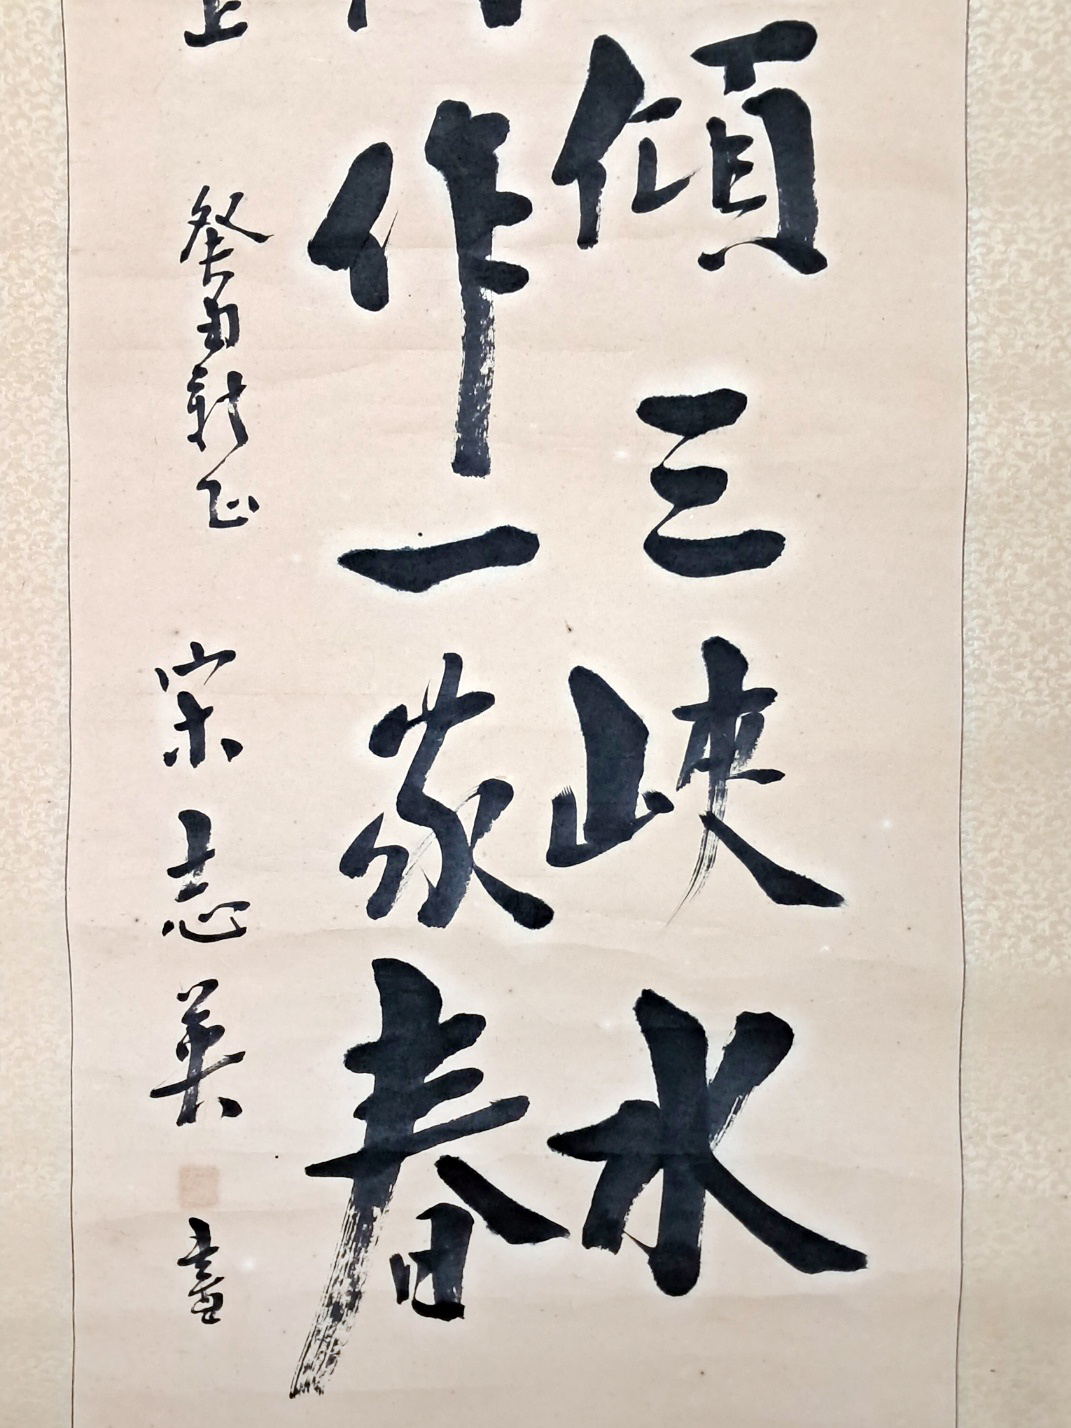 傾三峡水
作一家春
上 癸酉新正 宋志英 書